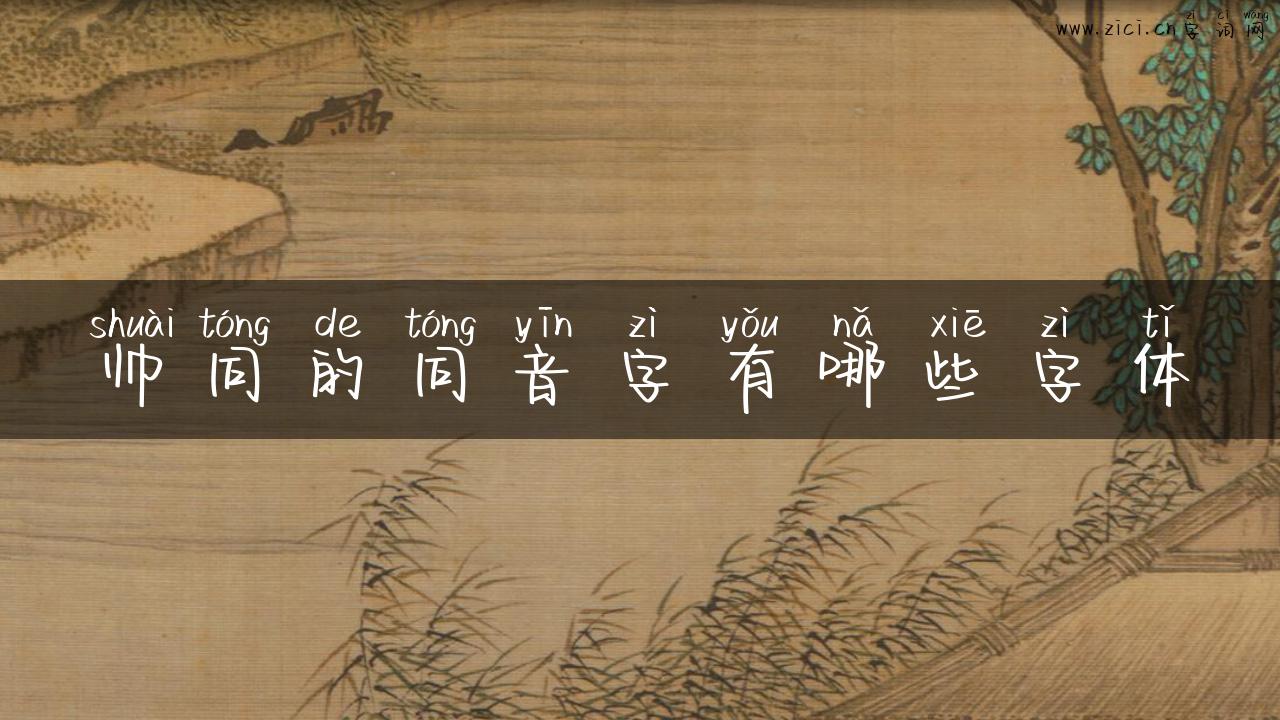 zì cí wǎng
www.zici.cn 字词网
shuài tóng de tóng yīn zì yǒu nǎ xiē zì tǐ
帅同的同音字有哪些字体